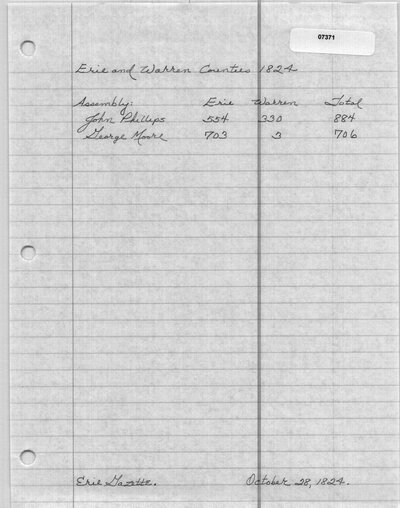 07371
Erie and Warren Counties 1824
Assembly: Erie Warren Total
John Phillips 554 330 884
George Moore 703 3 706
Erie Gazette. October 28, 1824.